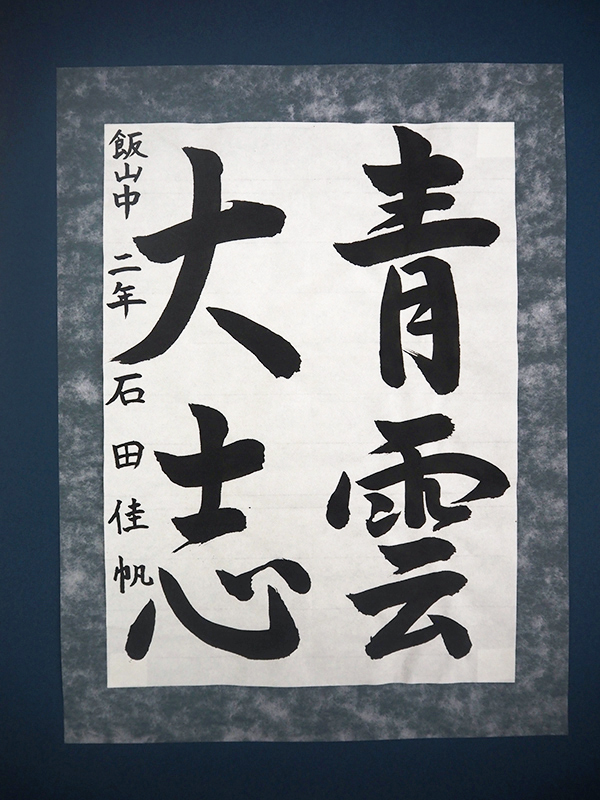 青雲
大志
飯山中 二年 石田佳帆